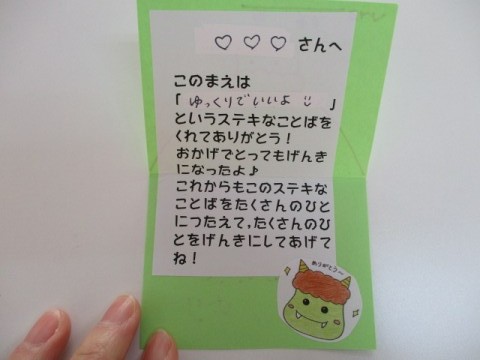 ♡ ♡ ♡ さんへ
このまえは
「ゆっくりでいいよ」
というステキなことばを
くれてありがとう！
おかげでとってもげんき
になったよ♪
これからもこのステキな
ことばをたくさんのひと
につたえて,たくさんのひ
とをげんきにしてあげて
ね！
ありがとう〜